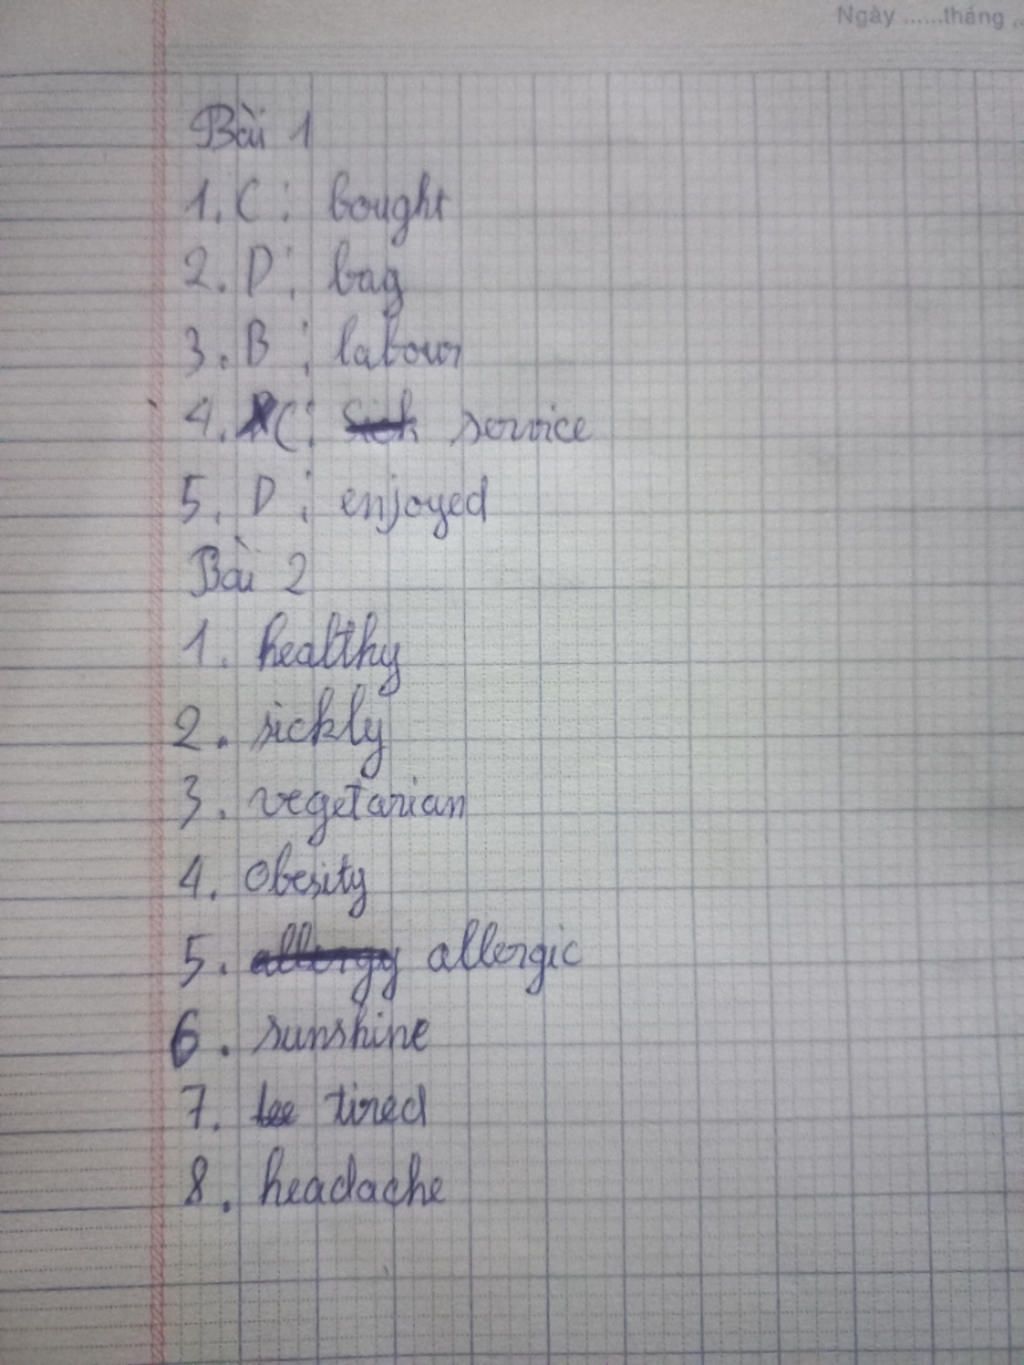 Ngày ......tháng ..
Bài 1
1. C : bought
2. D : bag
3. B : labour
4. C : sick service
5. D : enjoyed
Bài 2
1. healthy
2. sickly
3. vegetarian
4. obesity
5. allergy allergic
6. sunshine
7. tired
8. headache